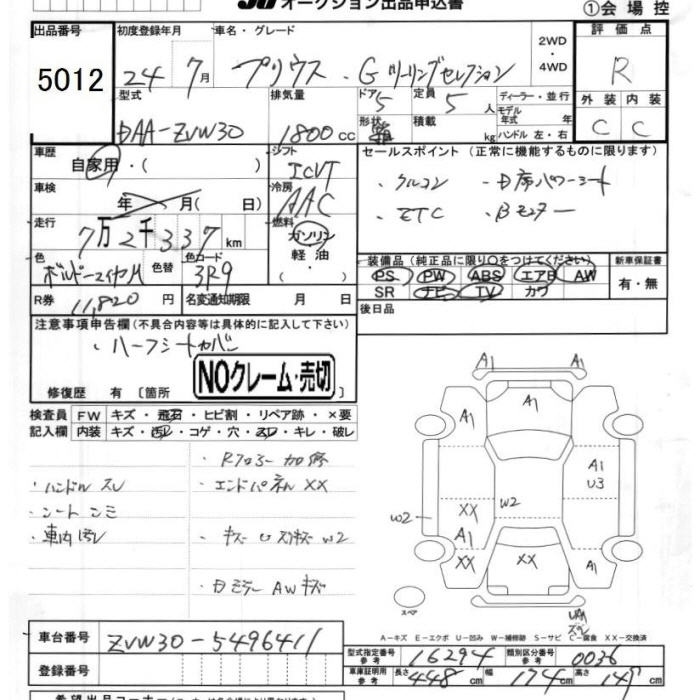 オークション出品申込書
①会場控
出品番号 初度登録年月 車名・グレード 2WD・4WD 評価点
5012 24 7月 プリウス・Gツーリングセレクション R
型式 排気量 ドア 定員 ディーラー・並行
DAA-ZVW30 1800cc 5 5人 モデル年式 年式
外装 内装
C C
形状 積載 kg ハンドル 左・右
車歴 シフト セールスポイント (正常に機能するものに限ります)
自家用・( ) ICVT
・クルコン ・D席パワーシート
車検 冷房
年 月( 日) AAC
・ETC ・Bモニター
走行 燃料
7万2千337km ガソリン・軽油・
色 色替 色コード
ボルドーマイカM 3R9
装備品(純正品に限り〇をつけてください) 新車保証書
PS PW ABS エアB AW 有・無
SR ナビ TV カワ
R券 11,820円 名変通知期限 月 日
後日品
注意事項申告欄(不具合内容等は具体的に記入して下さい)
・ハーフシートカバー
NOクレーム・売切
修復歴 有 〔箇所
検査員 FW キズ・飛石・ヒビ割・リペア跡・×要
記入欄 内装 キズ・汚レ・コゲ・穴・スレ・キレ・破レ
・Rフロアー加修
・ハンドルスレ ・エンドパネルXX
・シートシミ
・車内汚レ ・キズ U スリキズ W2
・Dミラー AWキズ
A1 A1
A1 A1
A1
U3
XX W2
W2
A1
XX XX A1
スペア
4AA
スレ
A-キズ E-エクボ U-凹み W-補修跡 S-サビ C-腐食 XX-交換済
車台番号 ZVW30-5496411
型式指定番号 参考 16294 類別区分番号 参考 0036
登録番号
車庫証明用 参考 長さ 448cm 幅 174cm 高さ 149cm
希望出品コーナー